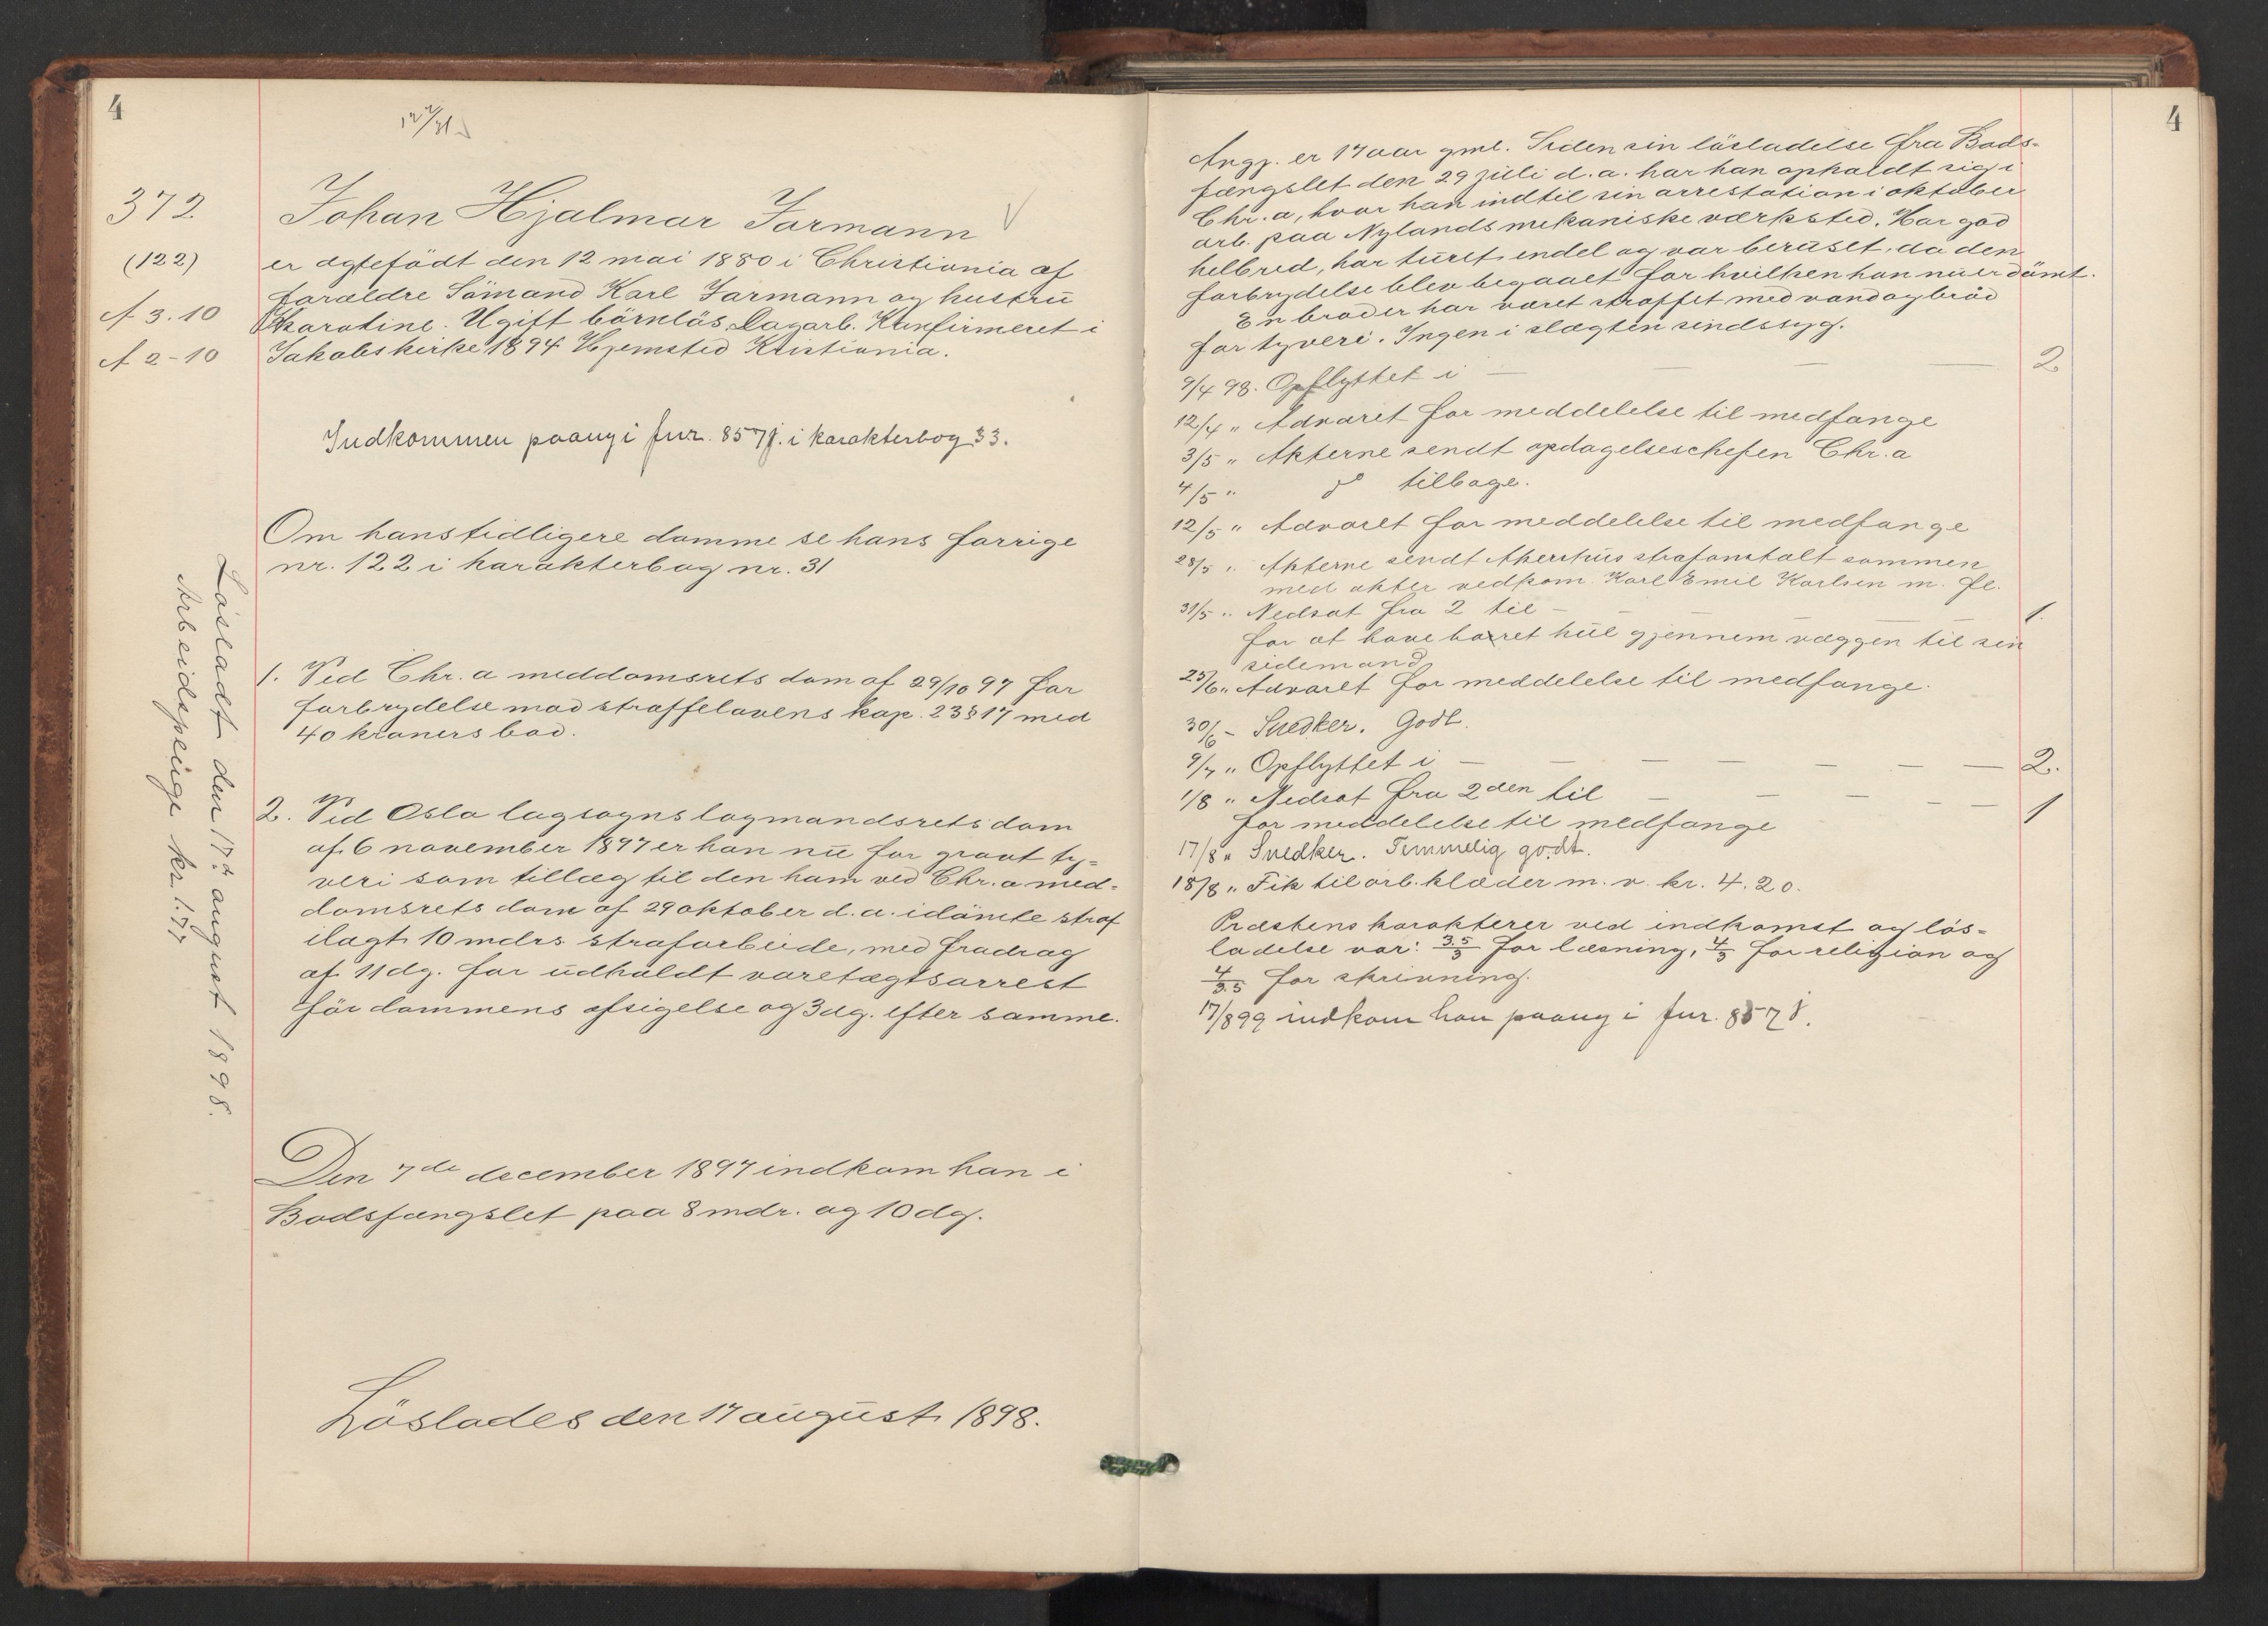 4
12 2/31
372
(122)
A 3.10
A 2-10
Johan Hjalmar Jarmann
er ægtefödt den 12 mai 1880 i Christiania af
forældre Sömand Karl Jarmann og hustru
Karotine. Ugift börnlös Dagarb. Konfirmeret i
Jakobskirke 1894 Hjemsted Kristiania.
Indkommen paany i fnr. 857 j. i karakterbog 33.
Om hans tidligere domme se hans forrige
nr. 122 i karakterbog nr. 31
1. Ved Chr.a meddomsrets dom af 29/10 97 for
forbrydelse mod straffelovens kap. 23 § 17 med
40 kroners bod.
2. Ved Oslo lagsogns lagmandsrets dom
af 6 november 1897 er han nu for grovt ty=
veri som tillæg til den ham ved Chr.a med=
domsrets dom af 29 oktober d.a. idömte straf
ilagt 10 mdrs strafarbeide, med fradrag
af 11 dg. for udholdt varetægtsarrest
för dommens afsigelse og 3 dg. efter samme.
Den 7de december 1897 indkom han i
Bodsfængslet paa 8 mdr. og 10 dg.
Löslades den 17 august 1898.
Lösladt den 17de august 1898.
Arbeidspenge kr. 1.77
4
Angj. er 17 aar gml. Siden sin lösladelse fra Bods-
fængslet den 29 juli d.a. har han opholdt sig i
Chr.a, hvor han indtil sin arrestation i oktober
arb. paa Nylands mekaniske værksted. Har god
helbred, har turet endel og var beruset, da den
forbrydelse blev begaaet for hvilken han nu er dömt.
En broder har været straffet med vand og bröd
for tyveri. Ingen i slægten sindssyg.
9/4 98. Opflyttet i — — — — 2
12/4 " Advaret for meddelelse til medfange
3/5 " Akterne sendt opdagelseschefen Chr.a
4/5 " do tilbage.
12/5 " Advaret for meddelelse til medfange
28/5 " Akterne sendt Akershus strafanstalt sammen
med akter vedkom. Karl Emil Karlsen m. fl.
31/5 " Nedsat fra 2 til — — — — 1.
for at have boret hul gjennem væggen til sin
sidemand
25/6 " Advaret for meddelelse til medfange.
30/6 – Snedker. Godt.
9/7 " Opflyttet i — — — — — — — 2.
1/8 " Nedsat fra 2den til — — — — — 1
for meddelelse til medfange
17/8 " Snedker. Temmelig godt.
18/8 " Fik til arb. klæder m. v. kr. 4.20.
Præstens karakterer ved indkomst og lös-
ladelse var: 3.5/3 for læsning, 4/3 for religion og
4/3.5 for skrivning.
17/8 99 indkom han paany i fnr. 857 j.